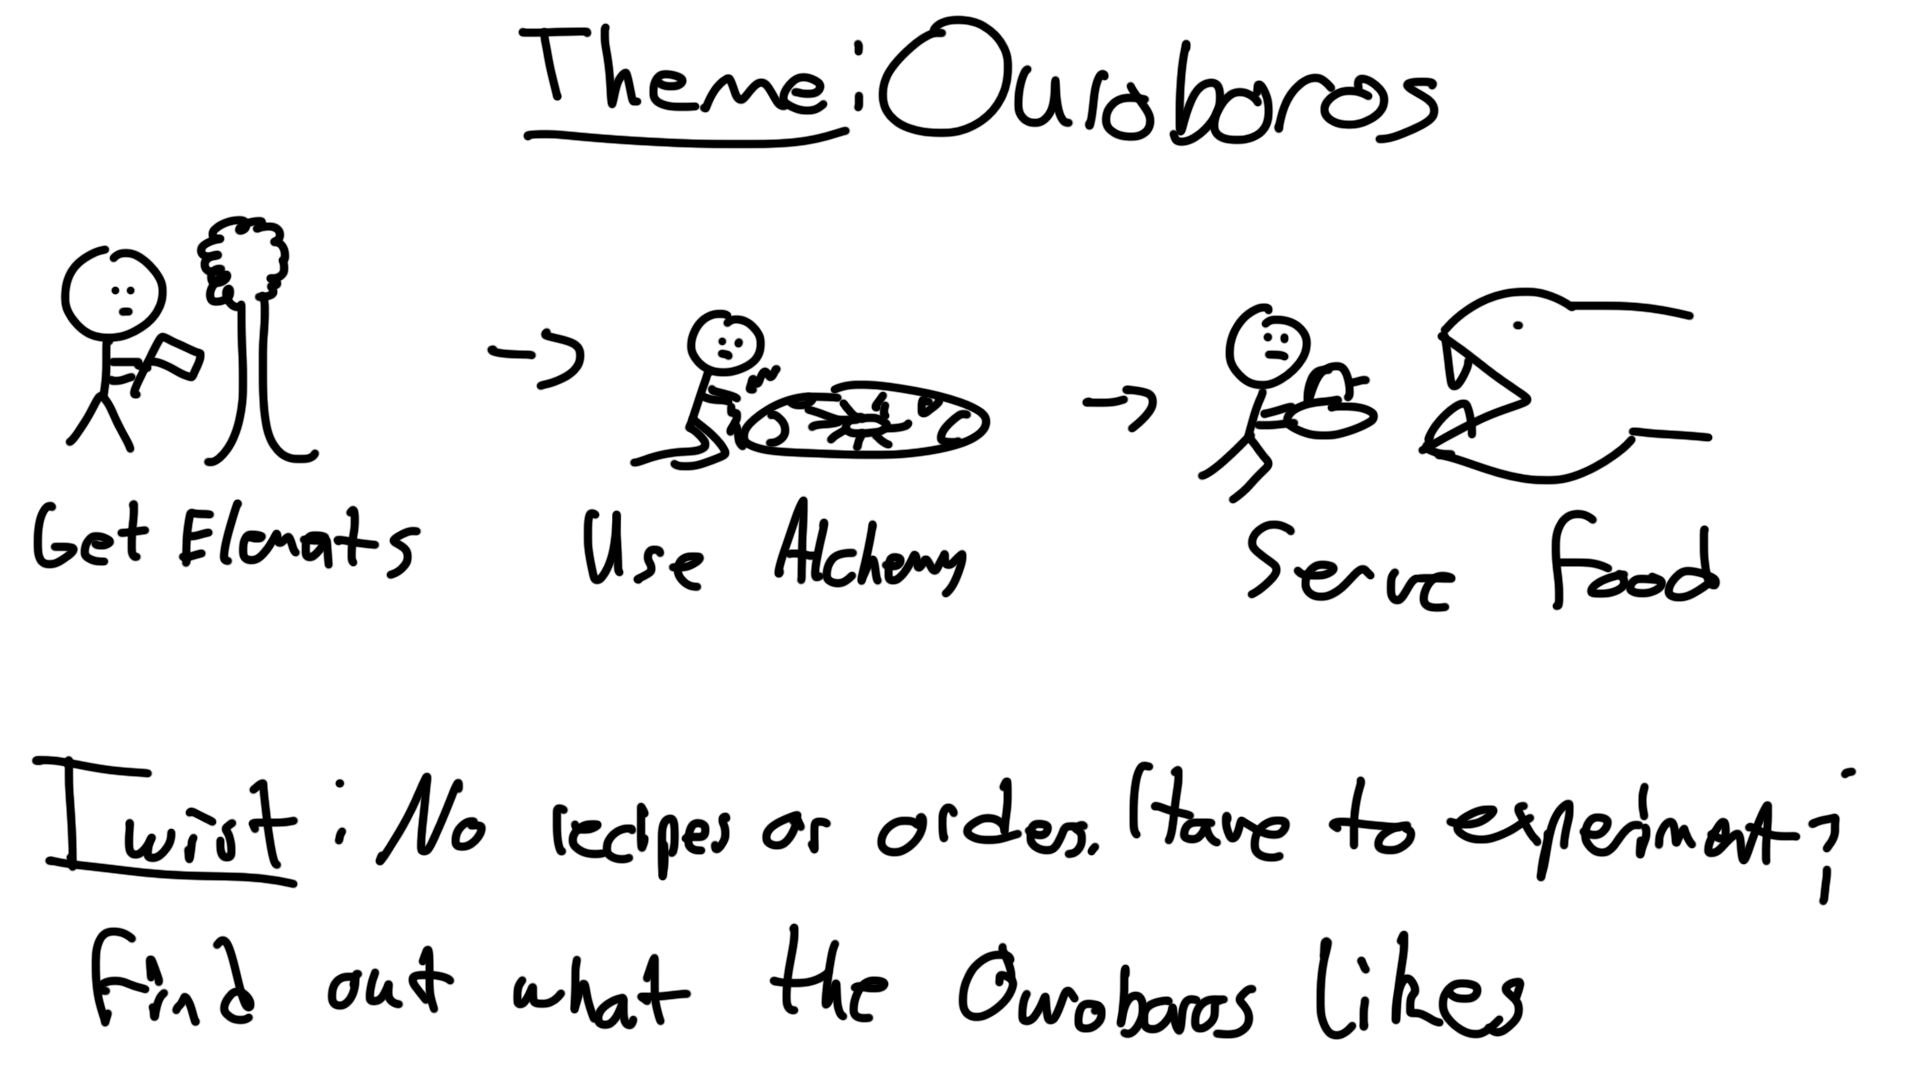 Theme: Ouroboros
Get Elements
Use Alchemy
Serve Food
Twist: No recipes or orders. Have to experiment;
Find out what the Ouroboros likes